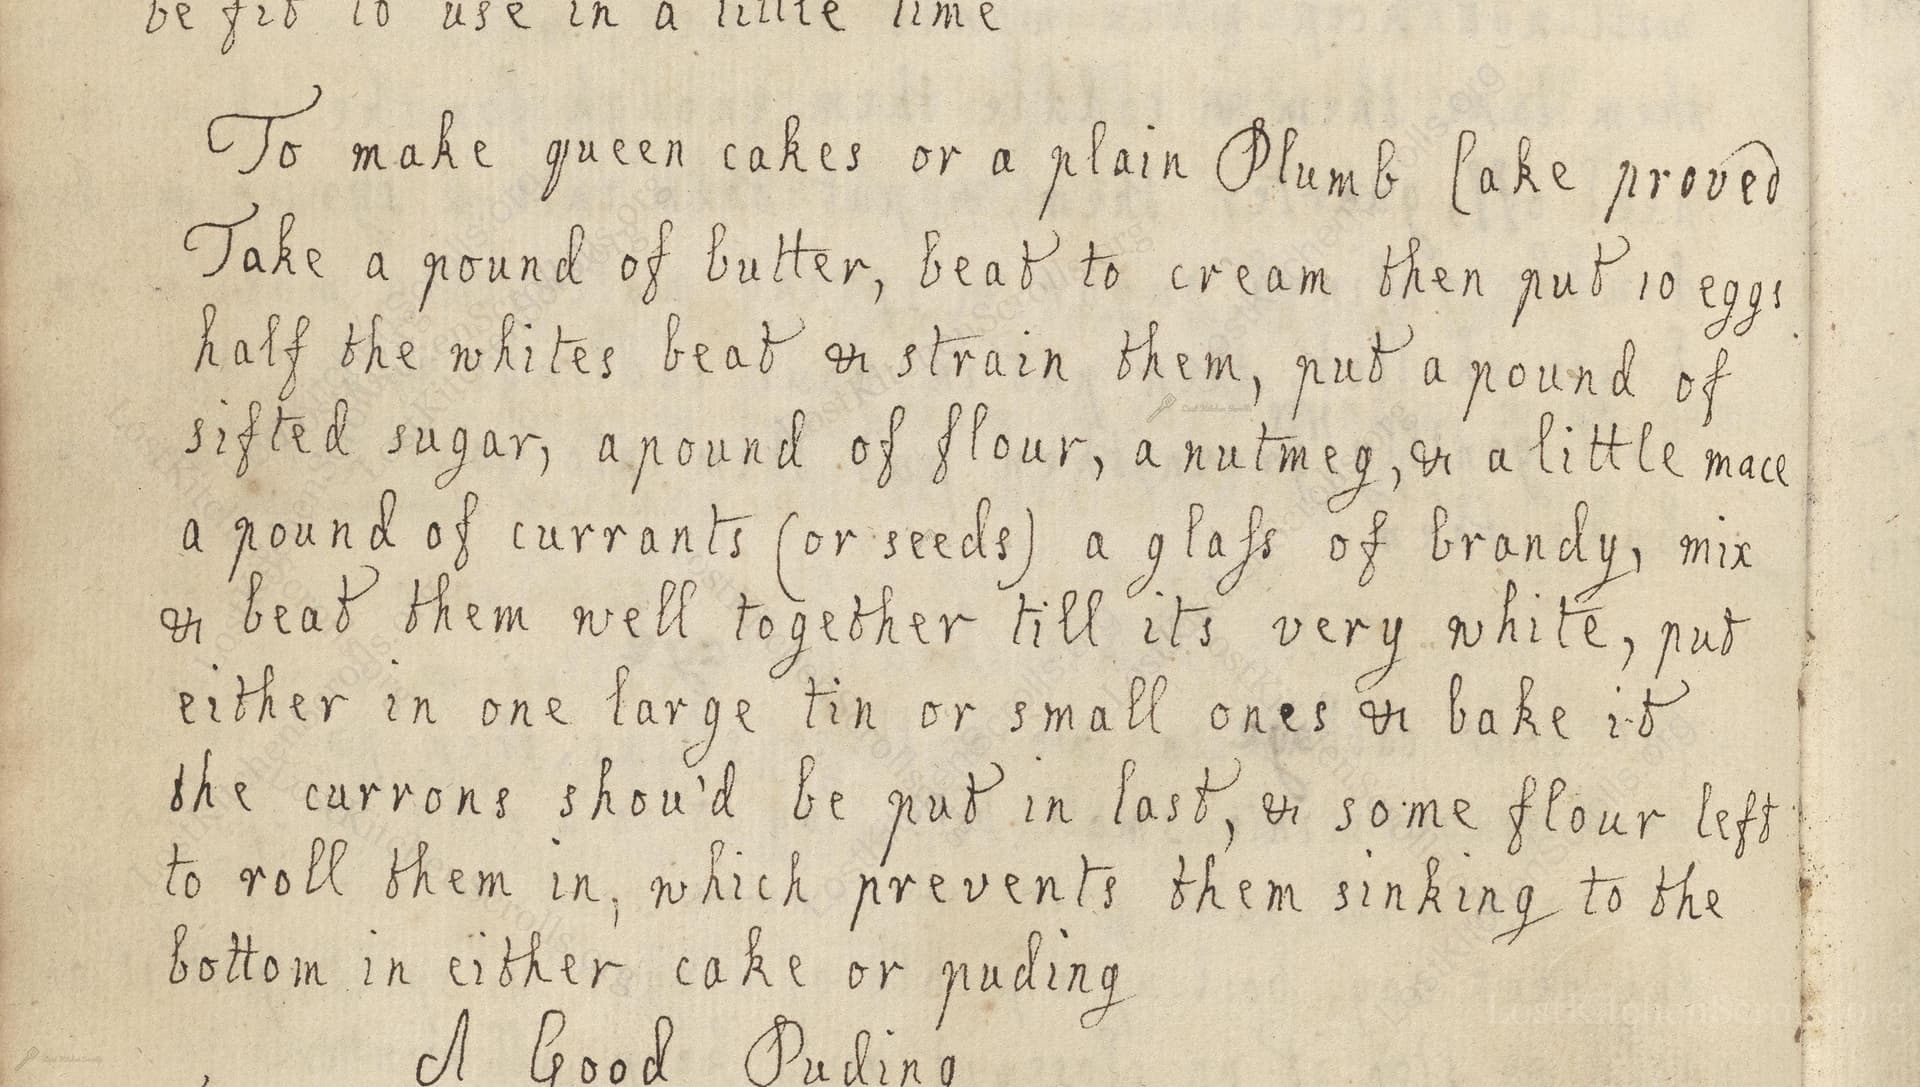 be fit to use in a little time
To make queen cakes or a plain Plumb Cake proved
Take a pound of butter, beat to cream then put 10 eggs
half the whites beat & strain them, put a pound of
sifted sugar, a pound of flour, a nutmeg, & a little mace
a pound of currants (or seeds) a glaſs of brandy, mix
& beat them well together till its very white, put
either in one large tin or small ones & bake it
the currons shou'd be put in last, & some flour left
to roll them in, which prevents them sinking to the
bottom in either cake or puding
A Good Puding